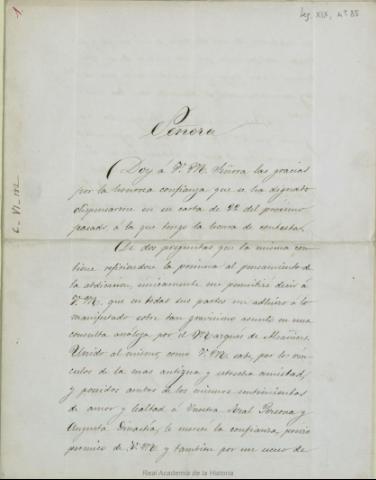 1
Leg. XIX, nº 85
6-VI-102
Señora
Doy á V. M. Señora las gracias
por la honrosa confianza que se ha dignado
dispensarme en su carta de 22 del próximo
pasado, á la que tengo la honra de contestar.
De dos preguntas que la misma con
tiene refiriendose la primera al pensamiento de
la abdicacion, unicamente me permitiré decir á
V. M. que en todas sus partes me adhiero á lo
manifestado sobre tan gravisimo asunto en una
consulta análoga por el Marqués de Miraflores.
Unido al mismo, como V. M. sabe, por los vin-
culos de la mas antigua y estrecha amistad,
y poseidos ambos de los mismos sentimientos
de amor y lealtad á Vuestra Real Persona y
Augusta Dinastía, le mereci la confianza, previo
permiso de V. M. y tambien por un exceso de
Real Academia de la Historia